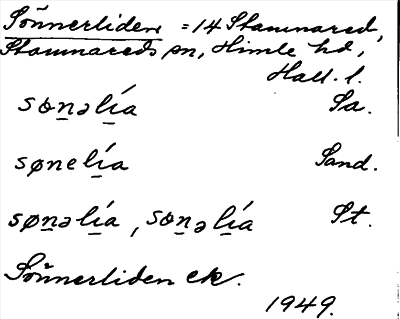 Sönnerliden = 14 Stamnared,
Stamnareds sn, Himle hd,
Hall. l.
sɵn̲əlí̲a Sa.
sønelí̲a Sand.
søn̲əlí̲a, sɵn̲əlí̲a St.
Sönnerliden ek.
1949.